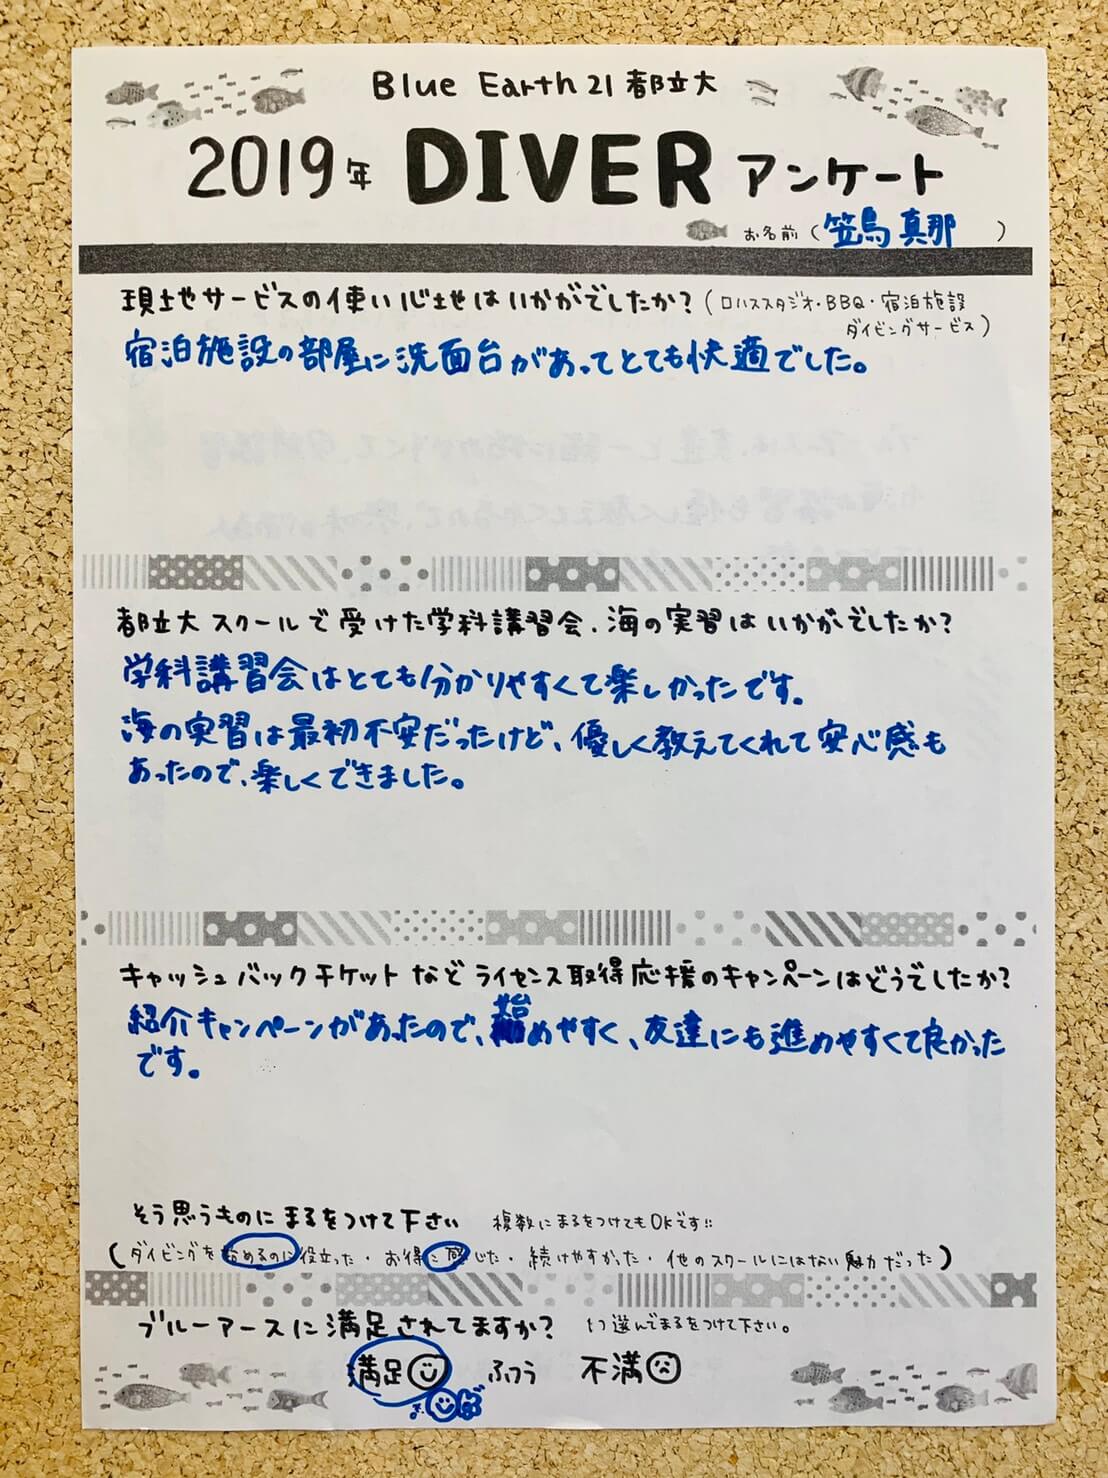 Blue Earth21都立大
2019年 DIVER アンケート
お名前(笠鳥 真那 )
現地やサービスの使い心地はいかがでしたか?(ロハススタジオ・BBQ・宿泊施設
ダイビングサービス)
宿泊施設の部屋に洗面台があってとても快適でした。
都立大スクールで受けた学科講習会、海の実習はいかがでしたか?
学科講習会はとても分かりやすくて楽しかったです。
海の実習は最初不安だったけど、優しく教えてくれて安心感も
あったので、楽しくできました。
キャッシュバックチケットなどライセンス取得応援のキャンペーンはどうでしたか?
紹介キャンペーンがあったので、始めやすく、友達にも進めやすくて良かった
です。
そう思うものにまるをつけて下さい 複数にまるをつけてもOKです!!
(ダイビングを始めるのに役立った・お得に感じた・続けやすかった・他のスクールにはない魅力だった)
ブルーアースに満足されてますか? 1つ選んでまるをつけて下さい。
満足 ふつう 不満